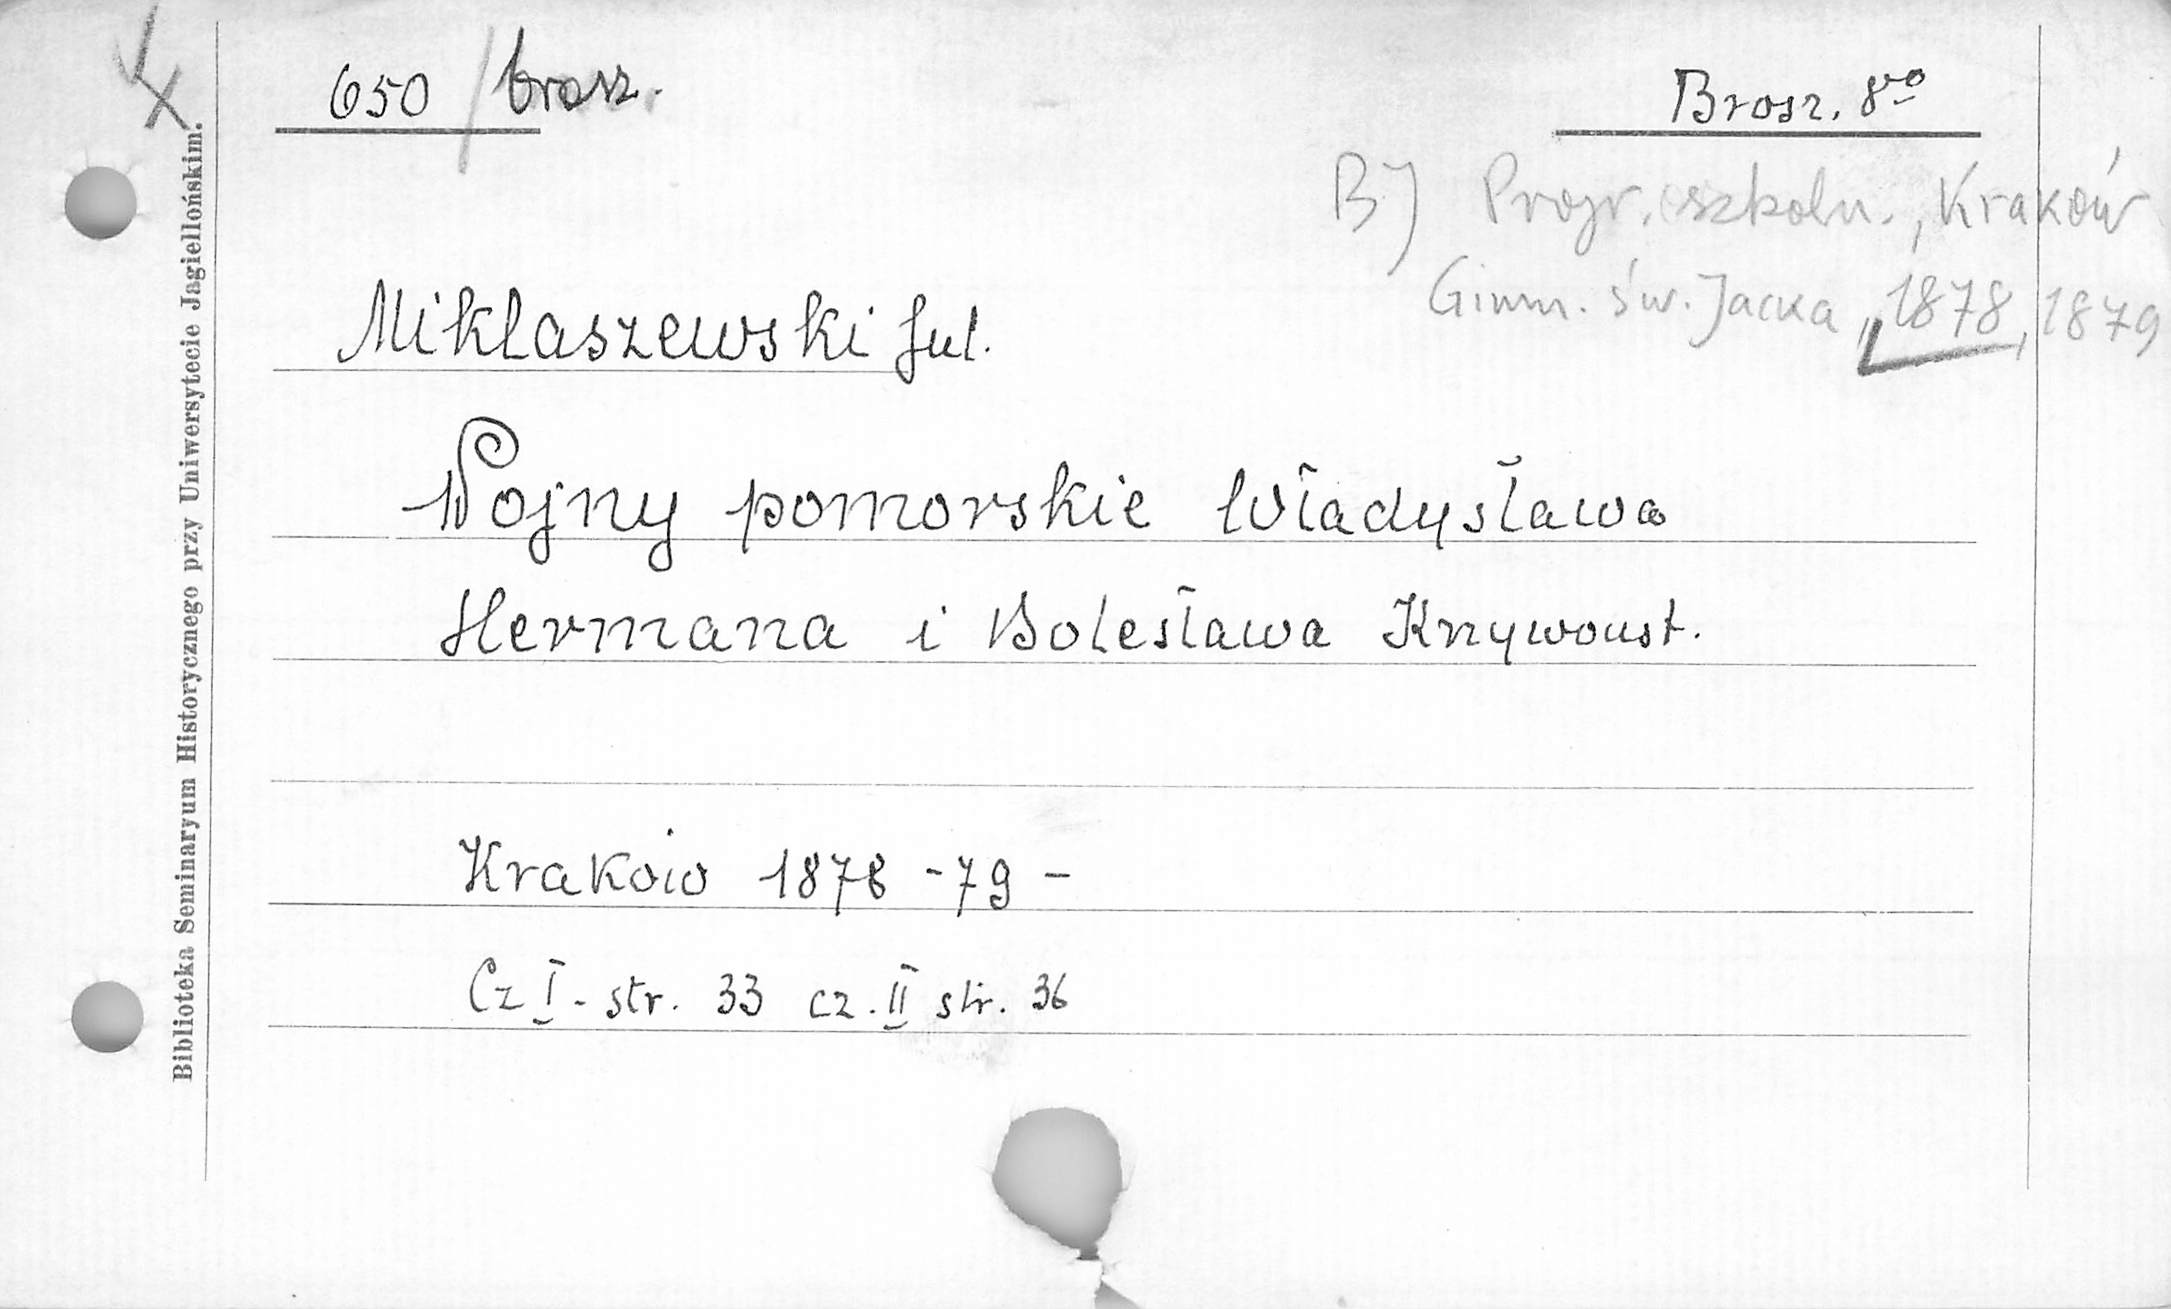 650 / brosz.
Brosz. 8vo
B) Progr. szkoln., Kraków
Gimn. św. Jacka, 1878, 1879
Miklaszewski Jul.
Wojny pomorskie Władysława
Hermana i Bolesława Krzywoust.
Kraków 1878 - 79 -
Cz I - str. 33 cz. II str. 36
Biblioteka Seminaryum Historycznego przy Uniwersytecie Jagiellońskim.